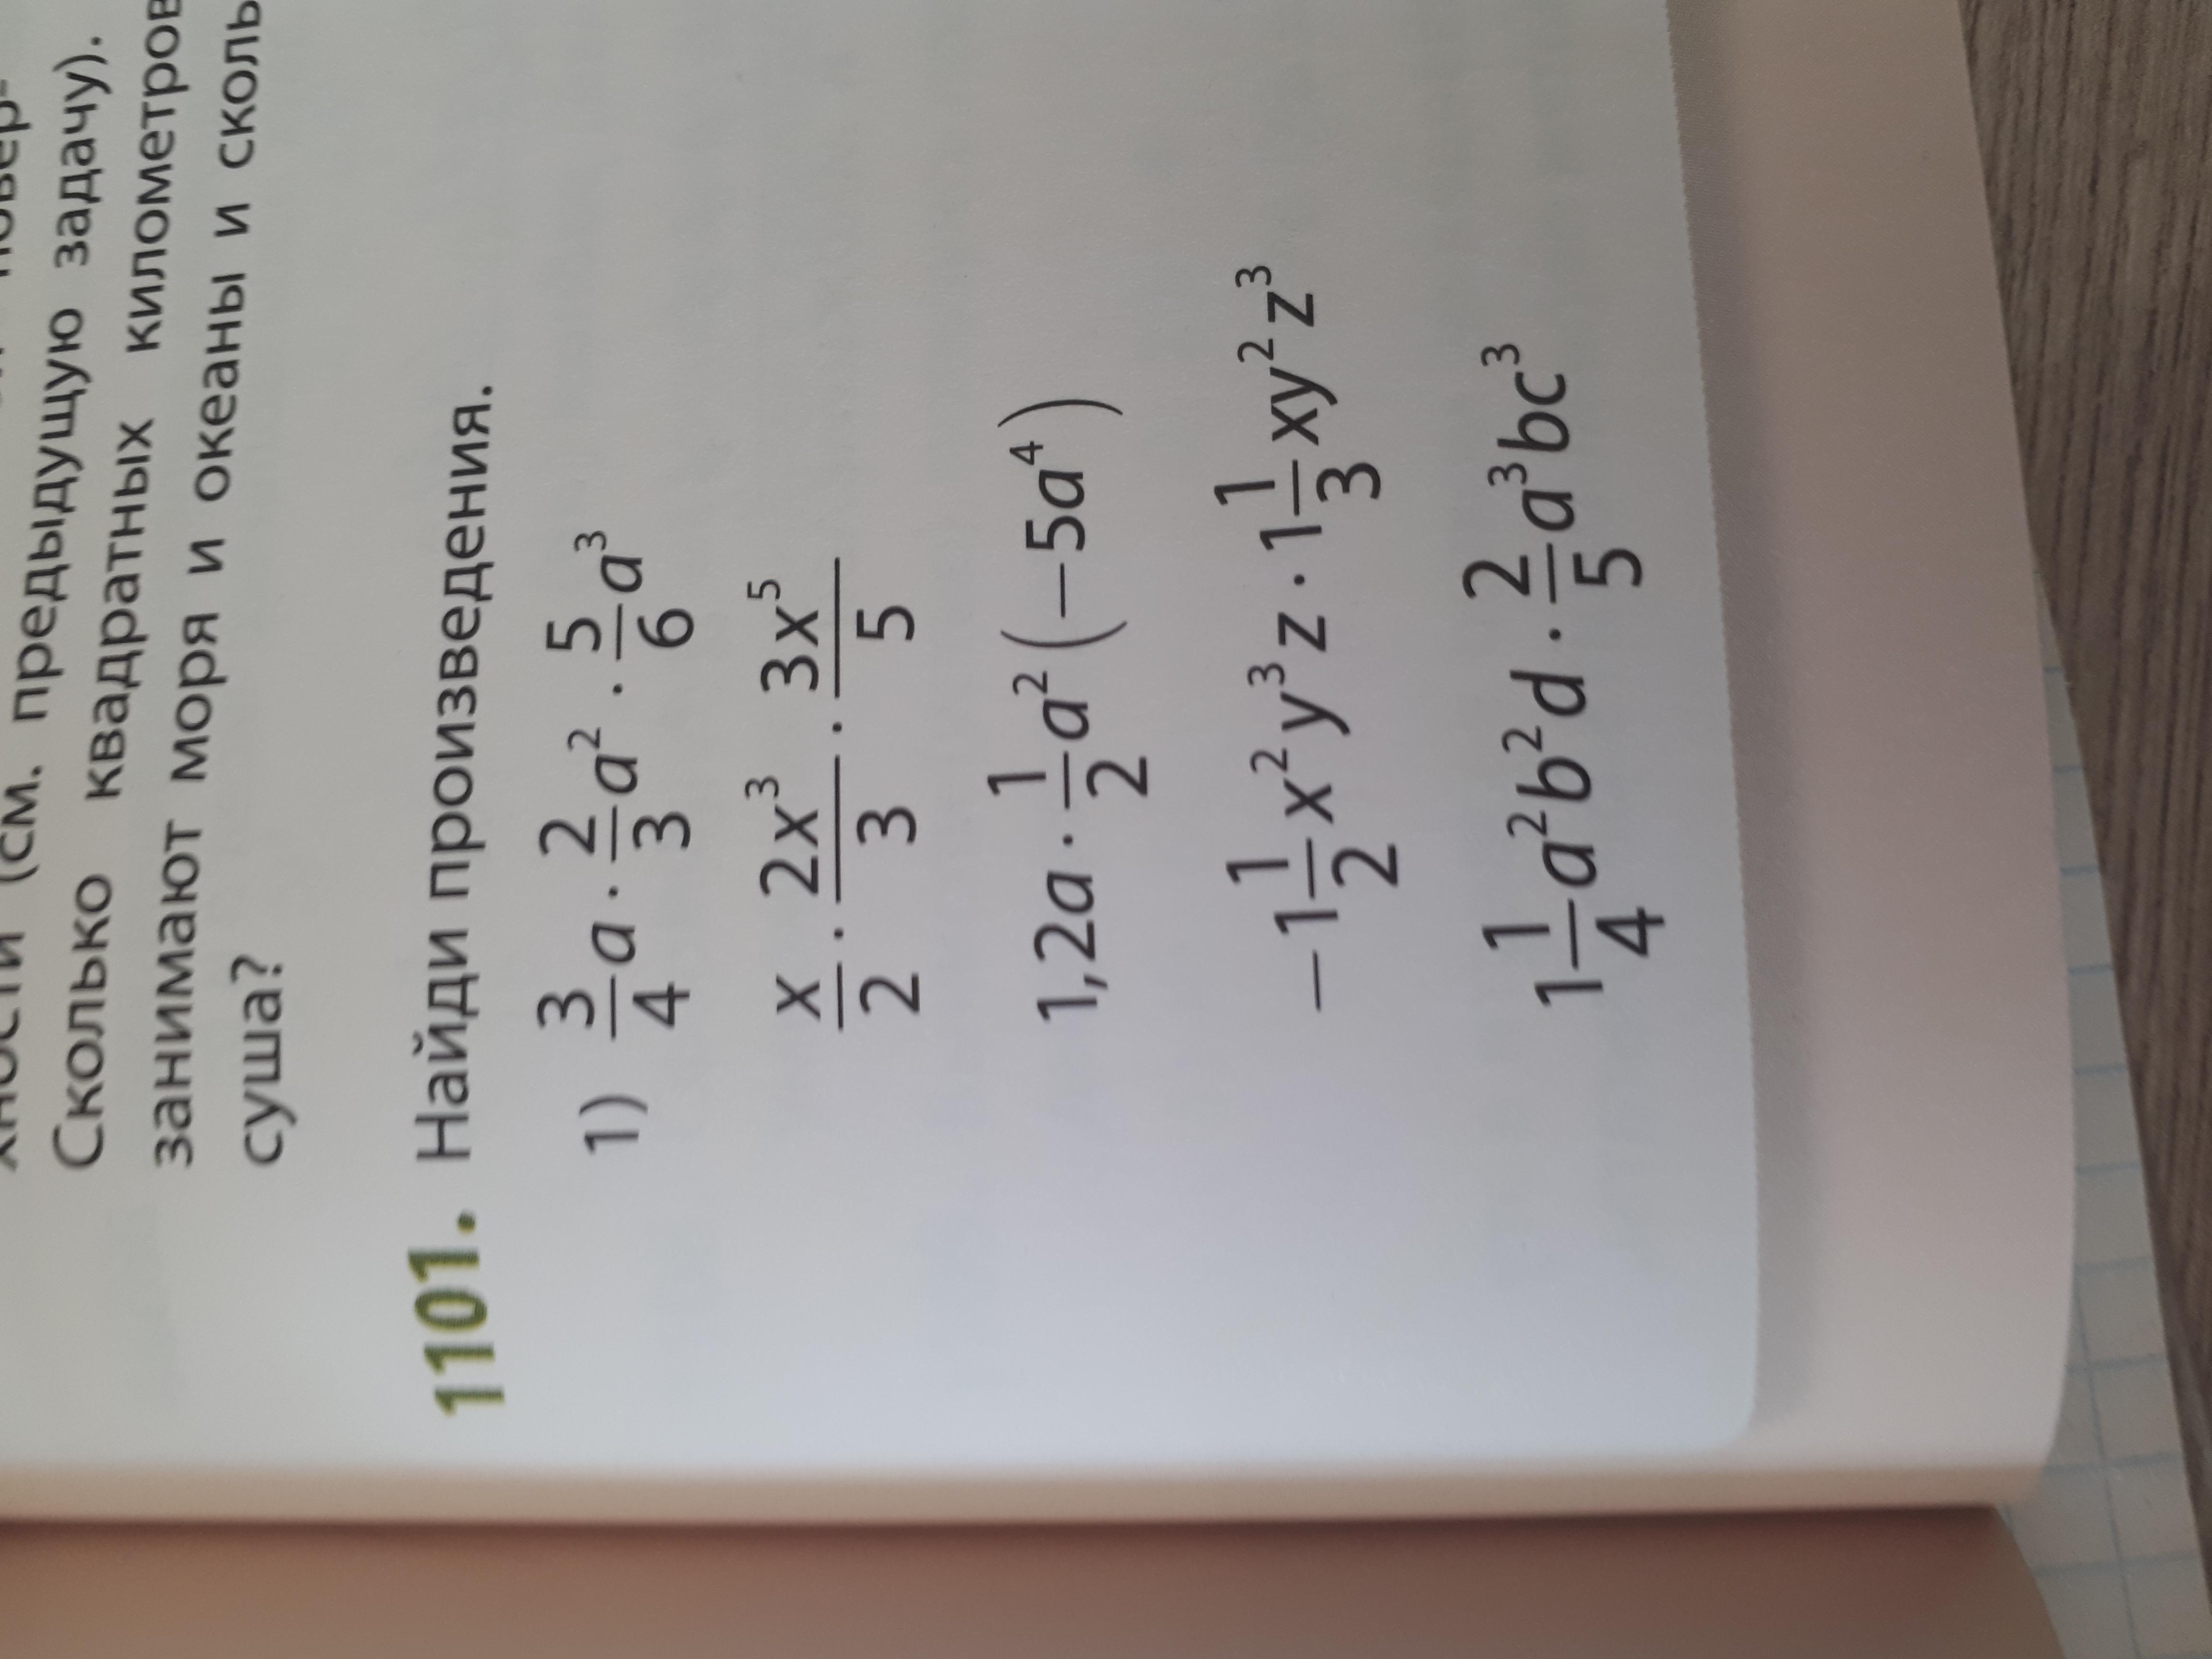 (см. предыдущую задачу).
Сколько квадратных километров
занимают моря и океаны и сколь
суша?
1101. Найди произведения.
1) 3/4 a · 2/3 a² · 5/6 a³
x/2 · 2x³/3 · 3x⁵/5
1,2a · 1/2 a² (−5a⁴)
−1 1/2 x²y³z · 1 1/3 xy²z³
1 1/4 a²b²d · 2/5 a³bc³